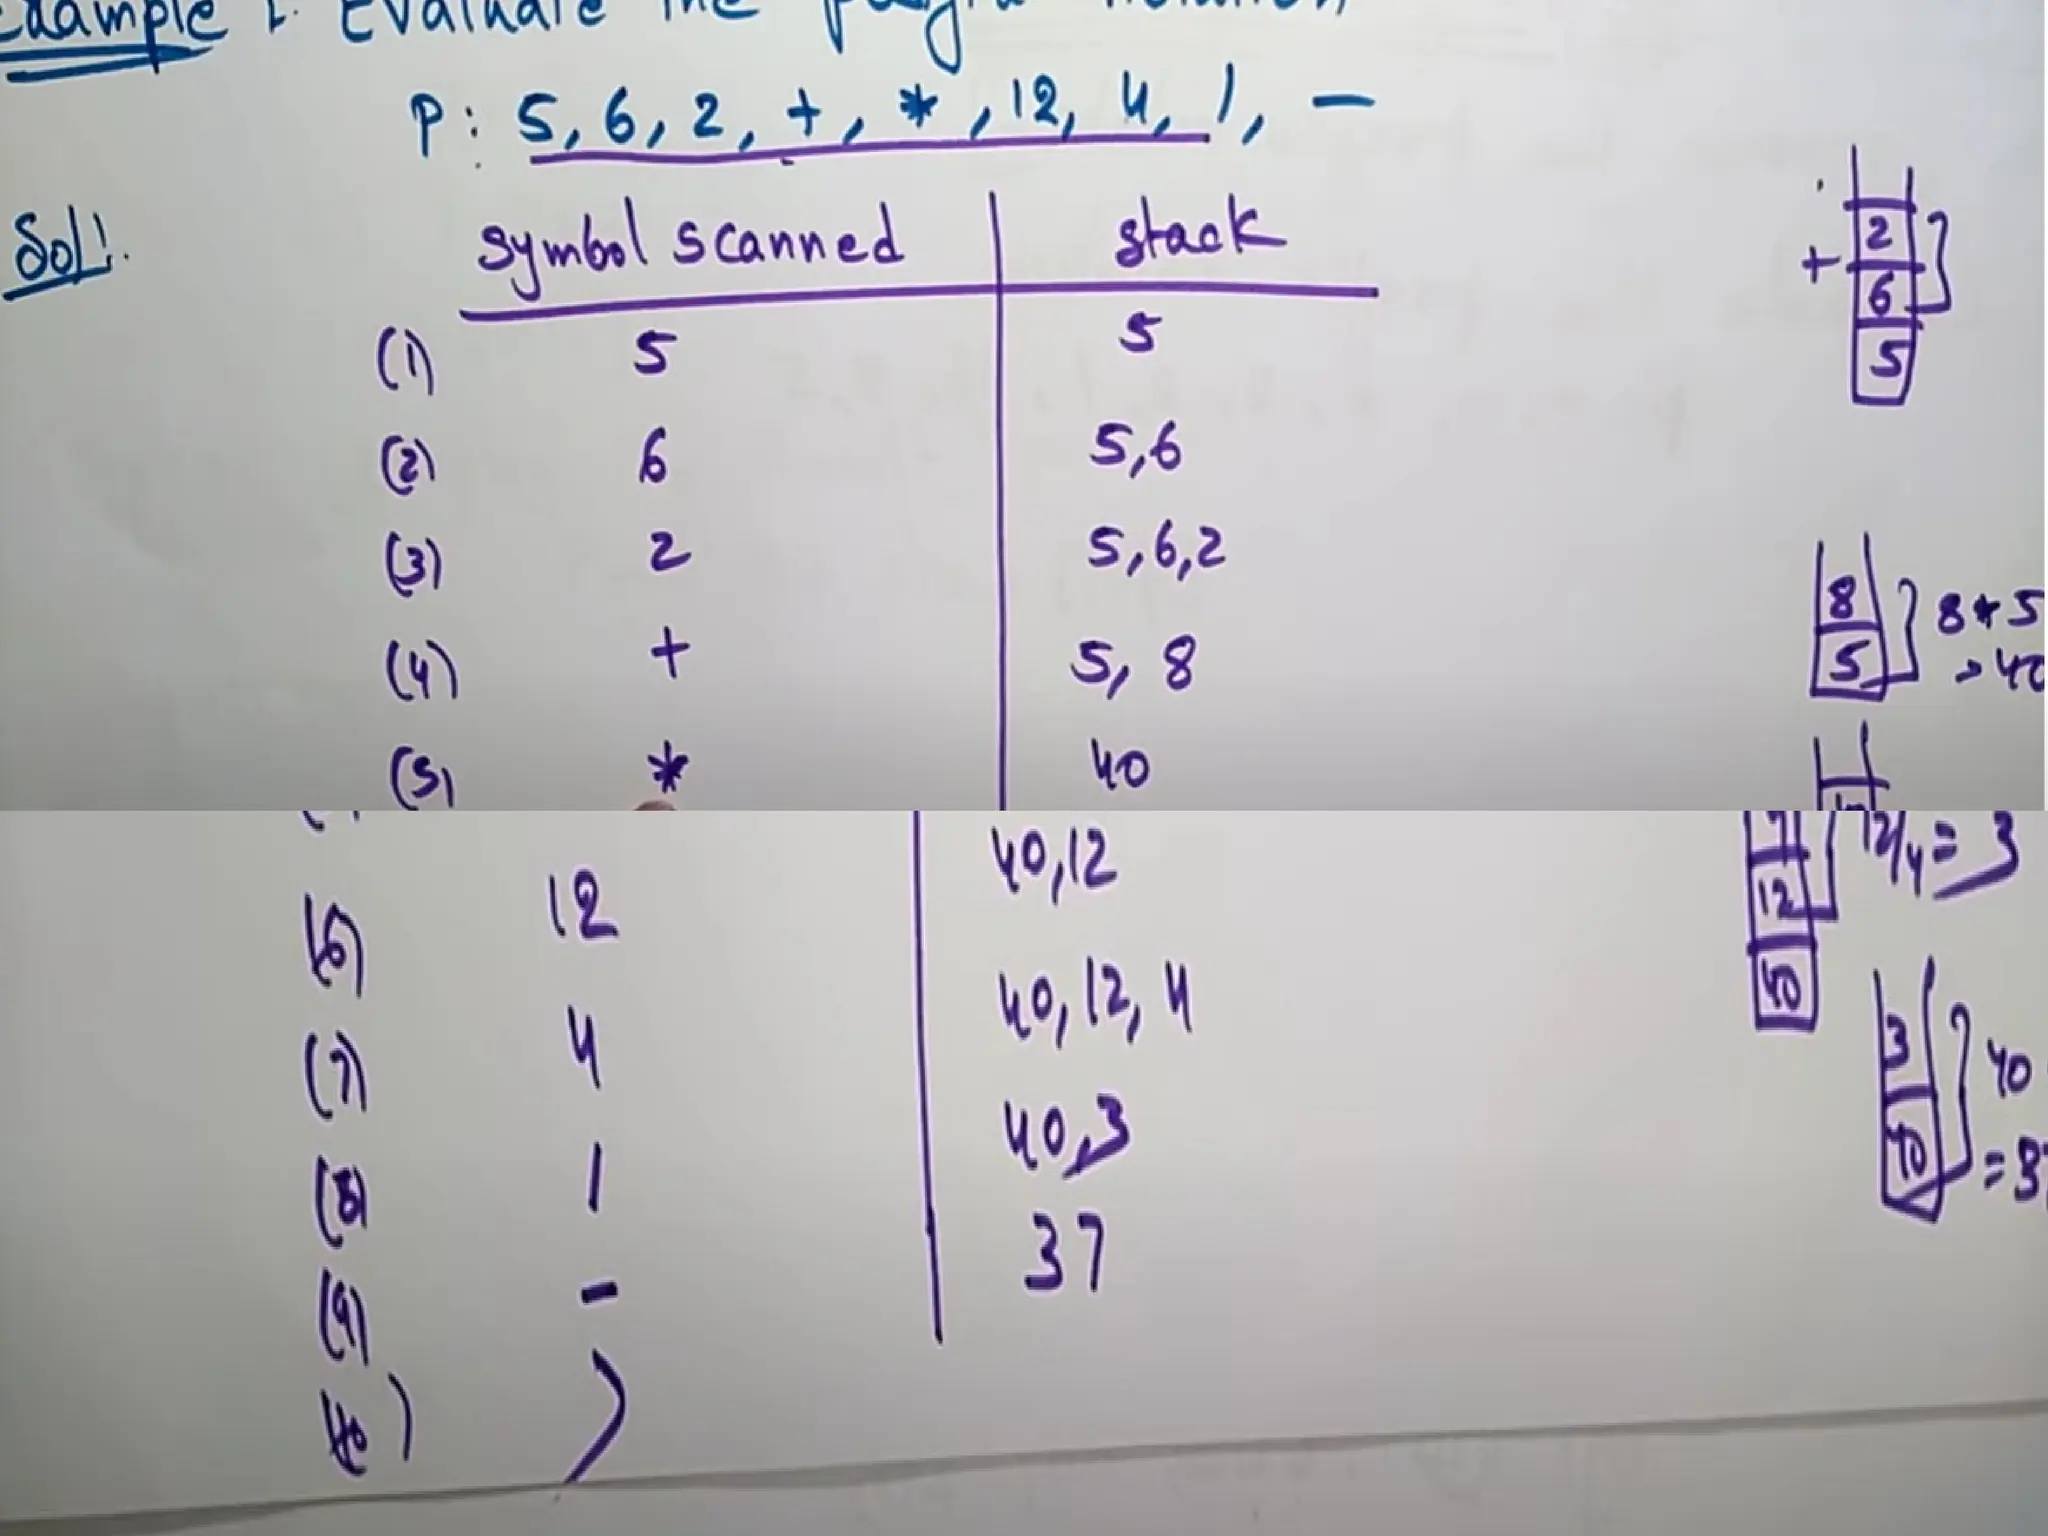 Example 1. Evaluate the notation
P: 5, 6, 2, +, *, 12, 4, /, -
Sol:.
Symbol scanned stack
(1) 5 5
(2) 6 5,6
(3) 2 5,6,2
(4) + 5, 8
(5) * 40
(6) 12 40,12
(7) 4 40,12,4
(8) / 40,3
(9) - 37
(10) )
+ 2
6
5
8 8*5
5 40
12/4=3
12
40
3 40
40 =37